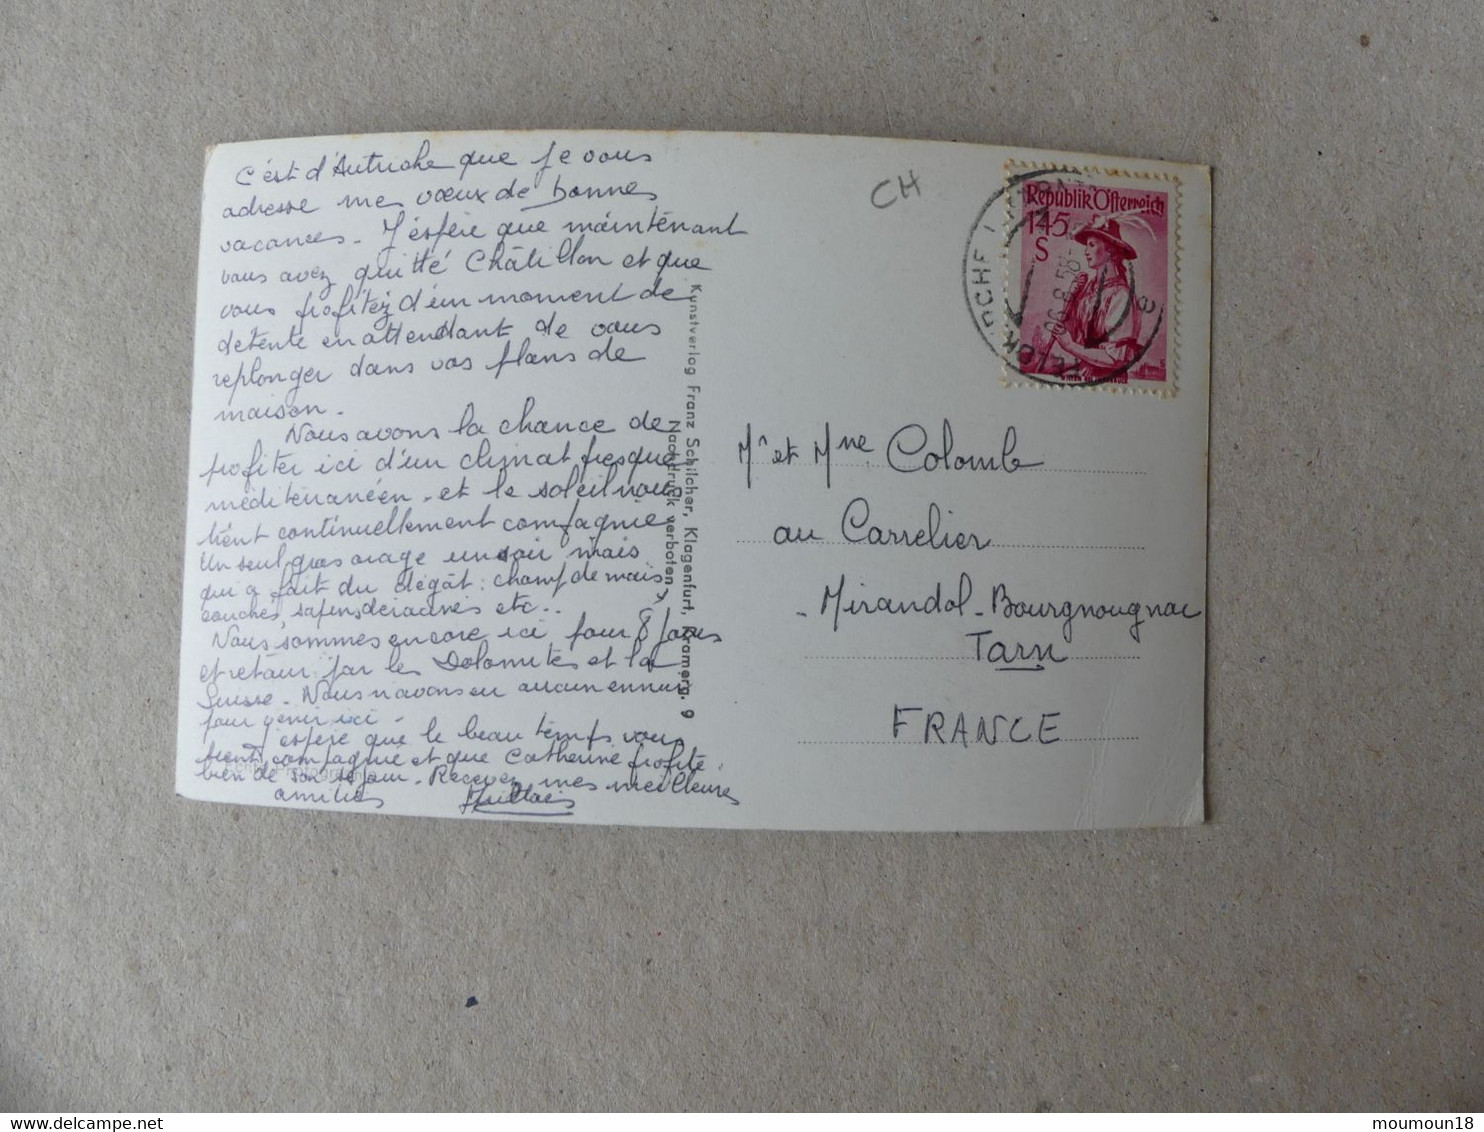 C'est d'Autriche que je vous
adresse mes vœux de bonnes
vacances. J'espère que maintenant
vous avez quitté Châtillon et que
vous profitez d'un moment de
détente en attendant de vous
replonger dans vos plans de
maison.
Nous avons la chance de
profiter ici d'un climat presque
méditerranéen et le soleil nous
tient continuellement compagnie
Un seul gros orage un soir mais
qui a fait du dégât : champ de maïs
couchés, sapins déracinés etc..
Nous sommes encore ici pour 8 jours
et retour par les Dolomites et la
Suisse. Nous n'avons eu aucun ennui
pour venir ici.
J'espère que le beau temps vous
tient compagnie et que Catherine profite
bien de son séjour. Recevez mes meilleures
amitiés
Kunstverlag Franz Schilcher, Klagenfurt, Kramerg. 9
Nachdruck verboten
CH
Republik Österreich
1.45
S
Mr et Mme Colomb
au Carrelier
Mirandol-Bourgnougnac
Tarn
FRANCE
moumoun18